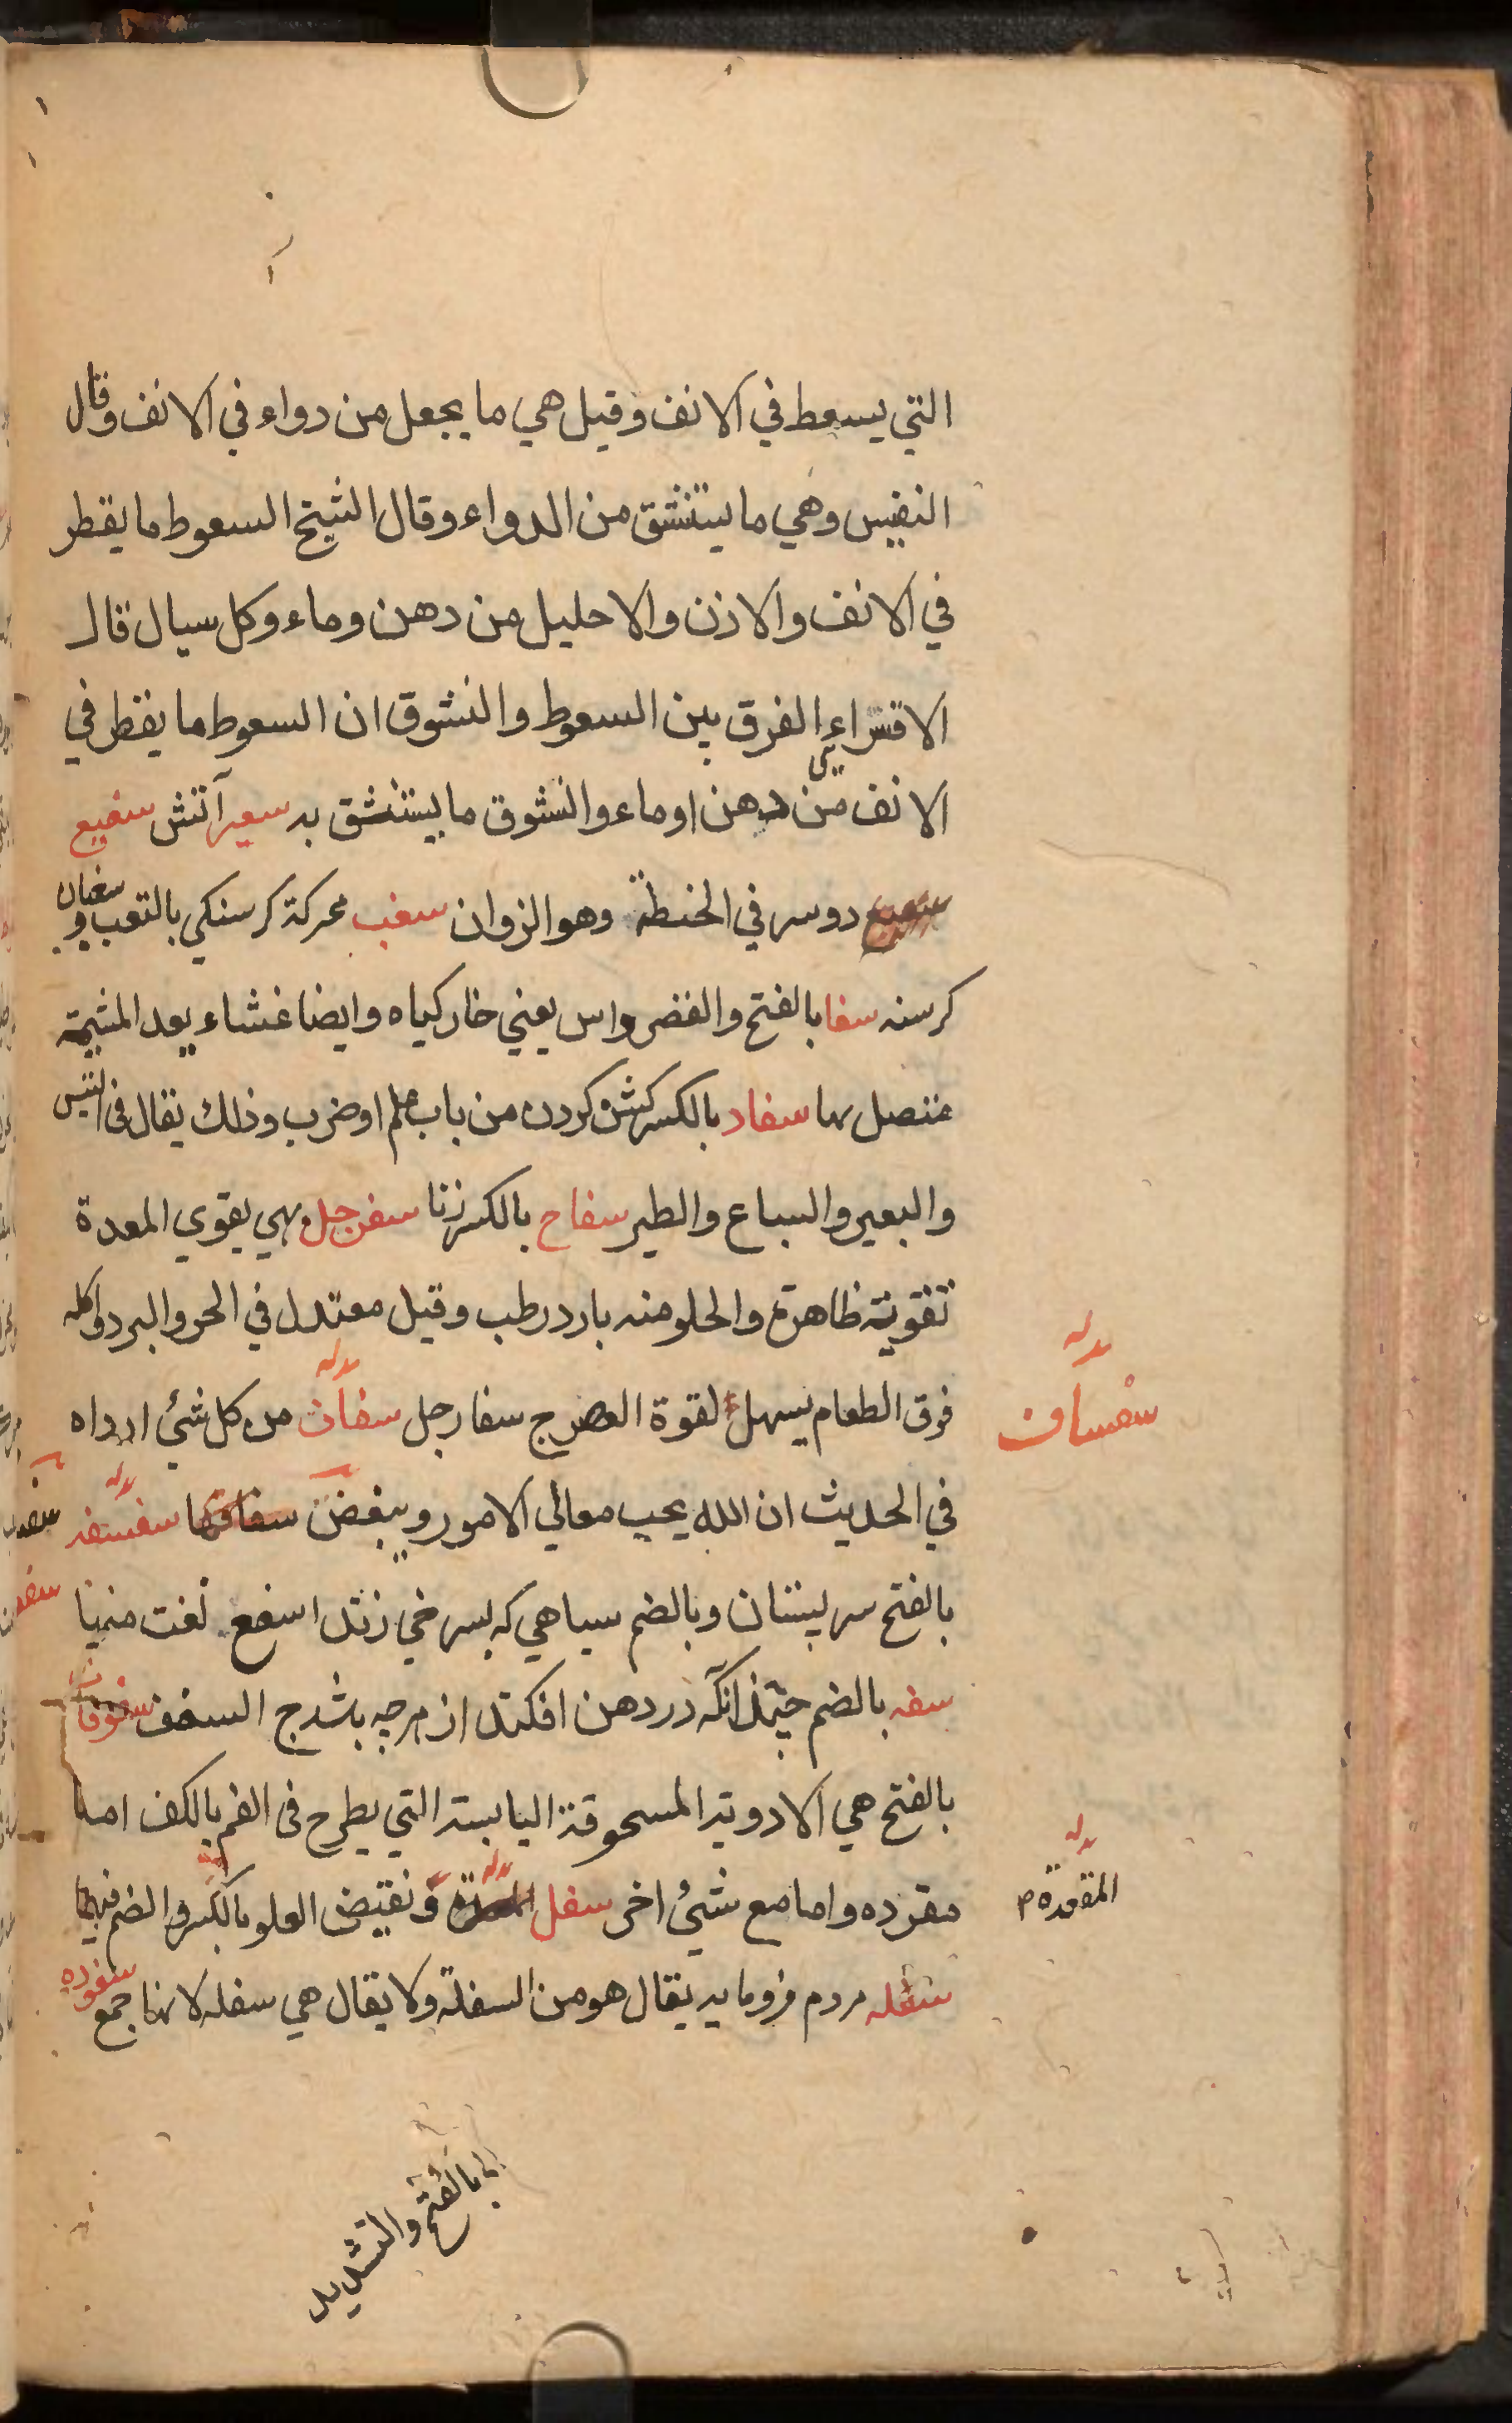 التي يسعط في الانف وقيل هي ما يجعل من دواء في الانف وقال
النفيس وهي ما يستنشق من الدواء وقال الشيخ السعوط ما يقطر
في الانف والاذن والاحليل من دهن وماء وكل سيال قال
الاقسرايي الفرق بين السعوط والنشوق ان السعوط ما يقطر في
الانف من دهن او ماء والنشوق ما يستنشق به سعير آتش سفيع
دوسر في الحنطة وهو الزوان سغب محركة كرسنكي بالتعب و سغبان
كرسنه سفا بالفتح والقصر واس يعني خار كياه وايضا غشاء بعد المشيمة
متصل بها سفاد بالكسر كشن كردن من باب علم او ضرب وذلك يقال في التيس
والبعير والسباع والطير سفاح بالكسر زنا سفرجل بهي يقوي المعدة
تقوية ظاهرة والحلو منه بارد رطب وقيل معتدل في الحر والبرد واكله
فوق الطعام يسهل لقوة العصر ج سفارجل من كل شئ ارداه
سفساف
في الحديث ان الله يحب معالي الامور ويبغض
بالفتح سر پستان وبالضم سياهي كه بسرخي زند اسفع نعت منها
سفه بالضم آنكه در دهن افكند از هر چه باشد ج السفف سفوفات
بالفتح هي الادوية المسحوقة اليابسة التي يطرح في الفم بالكف اما
مفرده واما مع شئ اخر سفل و نقيض العلو بالكسر والضم فيهما
المقعدة م
سفله مردم فرومايه يقال هو من السفلة ولا يقال هي سفله لانها جمع سفوده
بالفتح والتشديد